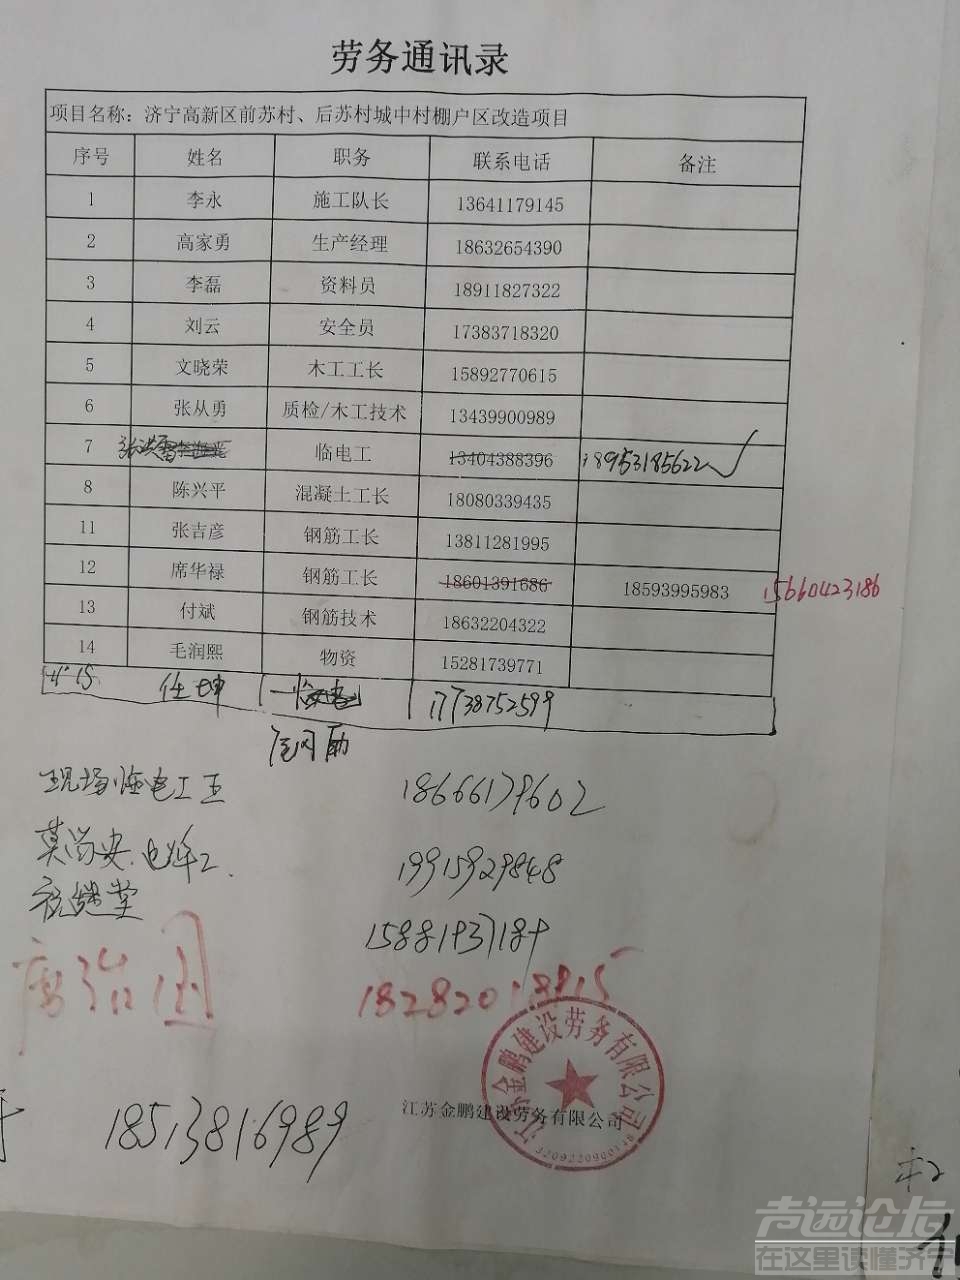 劳务通讯录
项目名称：济宁高新区前苏村、后苏村城中村棚户区改造项目
序号 姓名 职务 联系电话 备注
1 李永 施工队长 13641179145
2 高家勇 生产经理 18632654390
3 李磊 资料员 18911827322
4 刘云 安全员 17383718320
5 文晓荣 木工工长 15892770615
6 张从勇 质检/木工技术 13439900989
7 临电工 13404388396 18953185622
8 陈兴平 混凝土工长 18080339435
11 张吉彦 钢筋工长 13811281995
12 席华禄 钢筋工长 18601391686 18593995983 15660423186
13 付斌 钢筋技术 18632204322
14 毛润熙 物资 15281739771
15 任坤 17738752599
现场临电工王 18666179602
莫尚安 电焊工 19915929848
祝继堂 15881937189
唐治国
江苏金鹏建设劳务有限公司
江苏金鹏建设劳务有限公司
18513816989
声远论坛
在这里读懂济宁